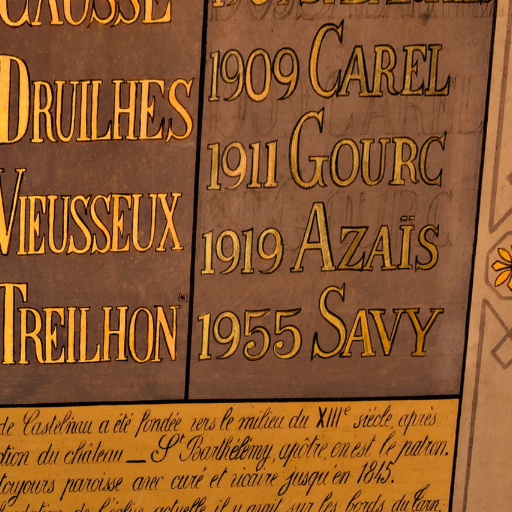 CAUSSE
DRUILHES
VIEUSSEUX
TREILHON (*)
1909 CAREL
1911 GOURC
1919 AZAÏS
1955 SAVY
de Castelnau a été fondée vers le milieu du XIIIe siécle, après
ction du château _ St Barthélemy, apôtre, en est le patron.
toujours paroisse avec curé et vicaire jusqu'en 1845.
de l'église actuelle, il y avait sur les bords du Tarn,